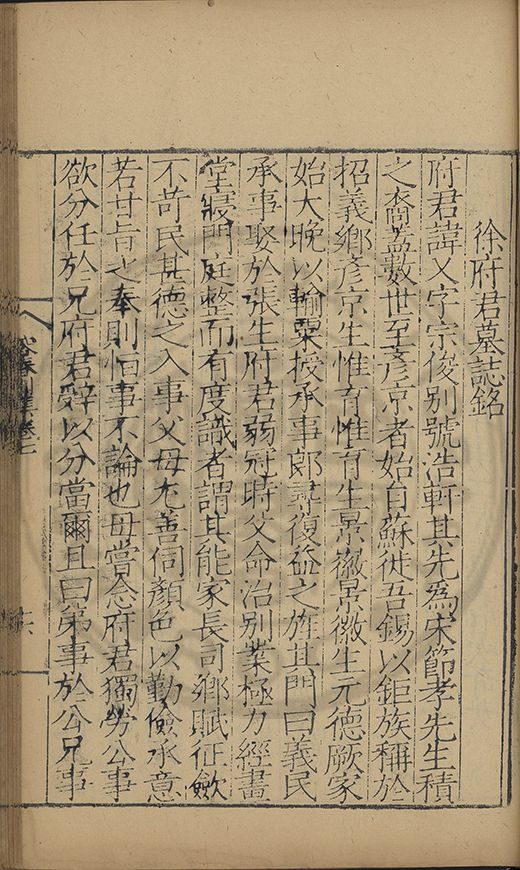 徐府君墓誌銘
府君諱乂字宗俊别號浩軒其先爲宋節孝先生積
之裔葢數世至彥京者始自蘇徙吾錫以鉅族稱於
招義鄉彥京生惟育惟育生景徽景徽生元德厥家
始大晚以輸粟授承事郎尋復益之旌其門曰義民
承事娶於張生府君弱冠時父命治别業極力經畫
堂寢門庭整而有度識者謂其能家長司鄉賦征歛
不苛民甚德之入事父母尤善伺顏色以勤儉承意
若甘旨之奉則恒事不論也母嘗念府君獨勞公事
欲分任於兄府君辭以分當爾且曰第事於公兄事
卷七
六